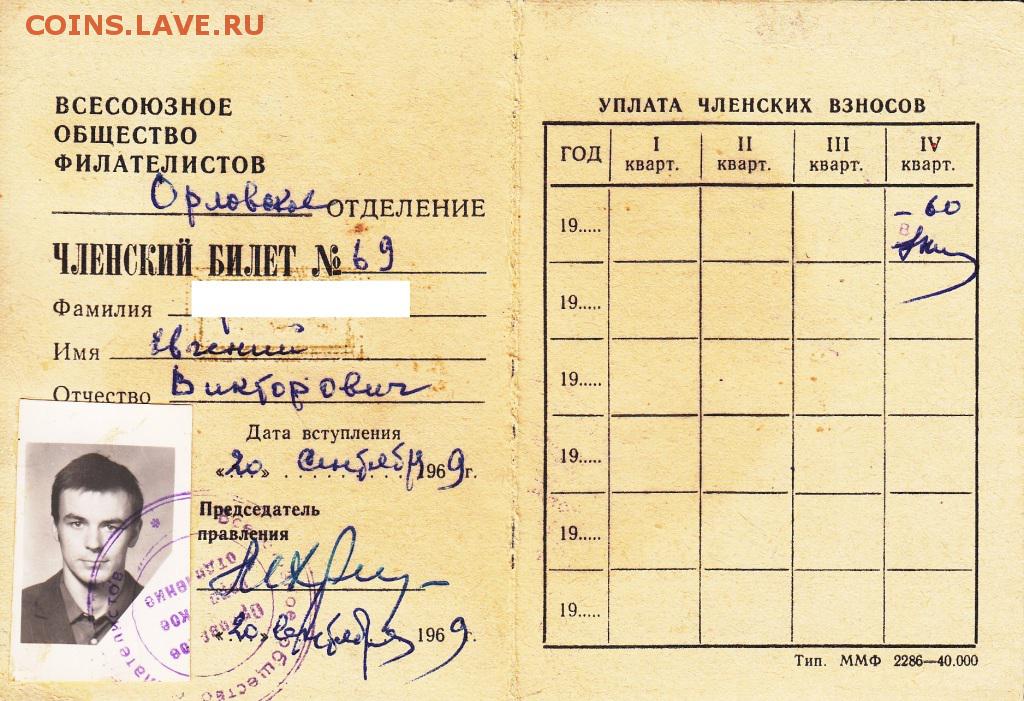 COINS.LAVE.RU
ВСЕСОЮЗНОЕ
ОБЩЕСТВО
ФИЛАТЕЛИСТОВ
Орловское ОТДЕЛЕНИЕ
ЧЛЕНСКИЙ БИЛЕТ № 69
Фамилия
Имя Евгений
Отчество Викторович
Дата вступления
«20» сентября 1969 г.
Председатель
правления
«20» сентября 1969 г.
УПЛАТА ЧЛЕНСКИХ ВЗНОСОВ
ГОД I кварт. II кварт. III кварт. IV кварт.
19..... – 60
19.....
19.....
19.....
19.....
19.....
Тип. ММФ 2286—40.000